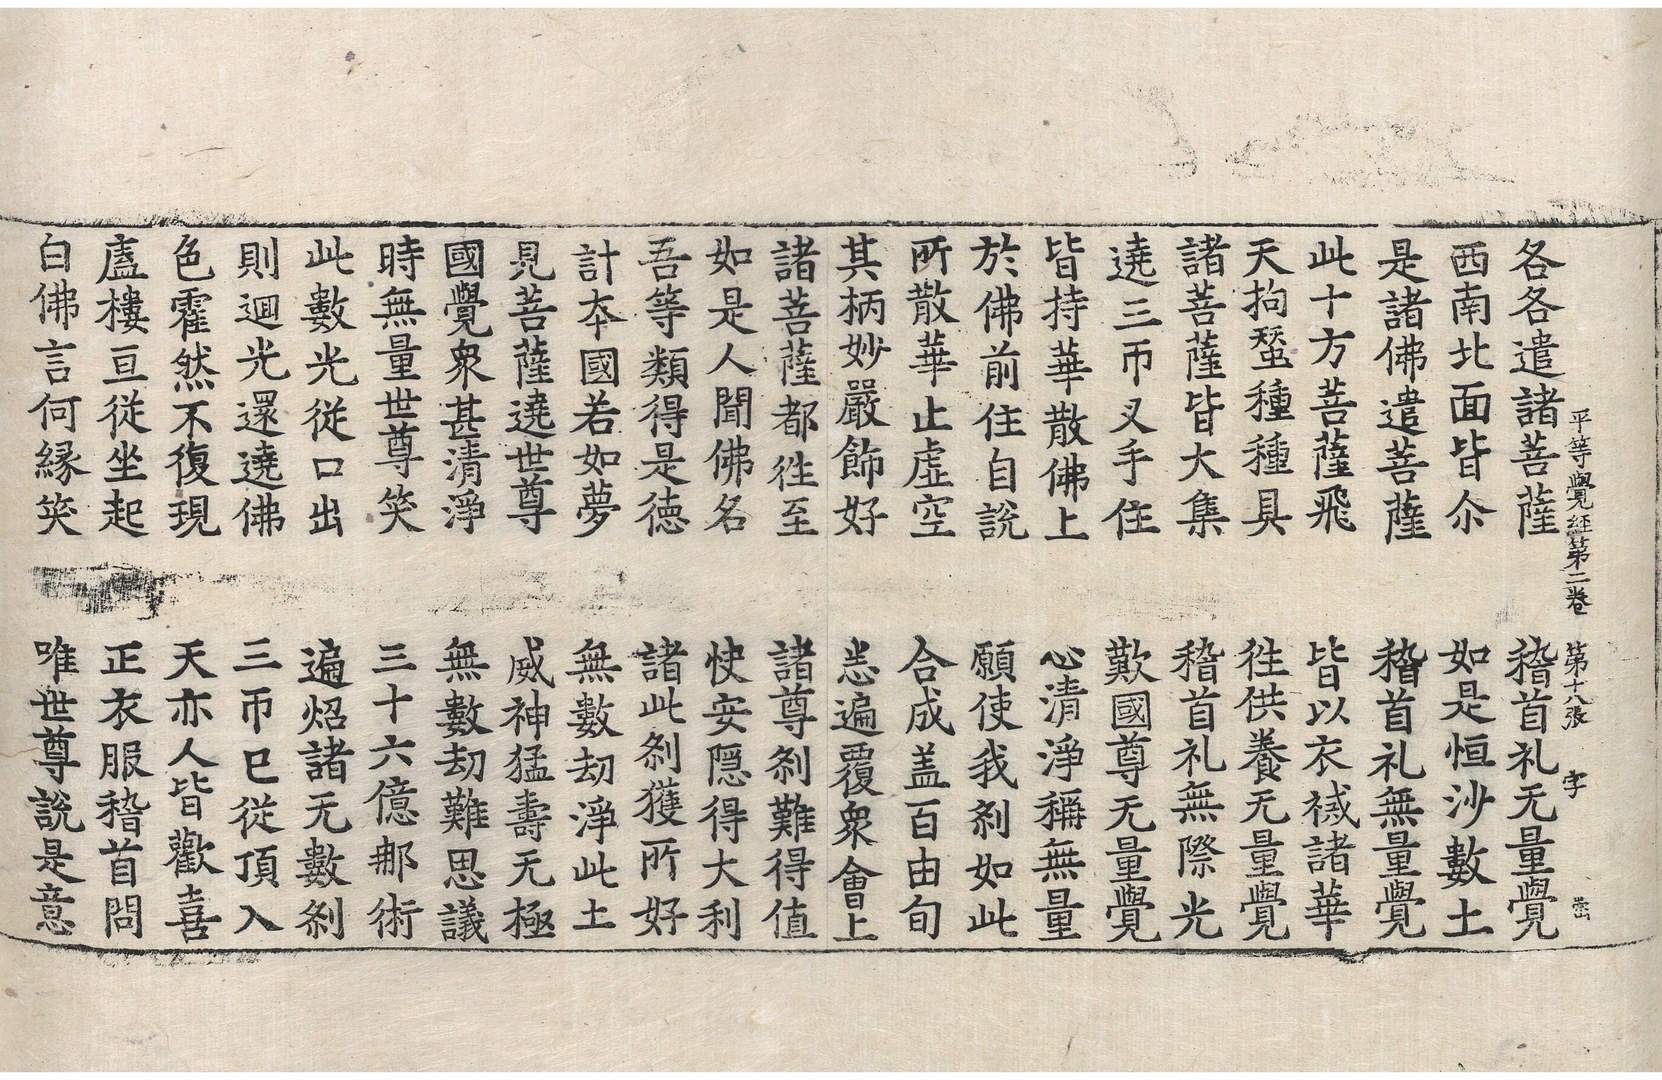 平等覺經第二卷 第十八張 字 崇
各各遣諸菩薩 稽首礼无量覺
西南北面皆尒 如是恒沙數土
是諸佛遣菩薩 稽首礼無量覺
此十方菩薩飛 皆以衣裓諸華
天拘蝅種種具 徃供養无量覺
諸菩薩皆大集 稽首礼無際光
遶三帀叉手住 歎國尊无量覺
皆持華散佛上 心清淨稱無量
於佛前住自說 願使我刹如此
所散華止虛空 合成盖百由旬
其柄妙嚴飾好 悉遍覆衆會上
諸菩薩都徃至 諸尊刹難得值
如是人聞佛名 快安隱得大利
吾等類得是德 諸此刹獲所好
計夲國若如夢 無數劫淨此土
見菩薩遶世尊 威神猛壽无極
國覺衆甚清淨 無數劫難思議
時無量世尊笑 三十六億那術
此數光從口出 遍炤諸无數刹
則迴光還遶佛 三帀已從頂入
色霍然不復現 天亦人皆歡喜
廅樓亘從坐起 正衣服稽首問
白佛言何緣笑 唯世尊說是意